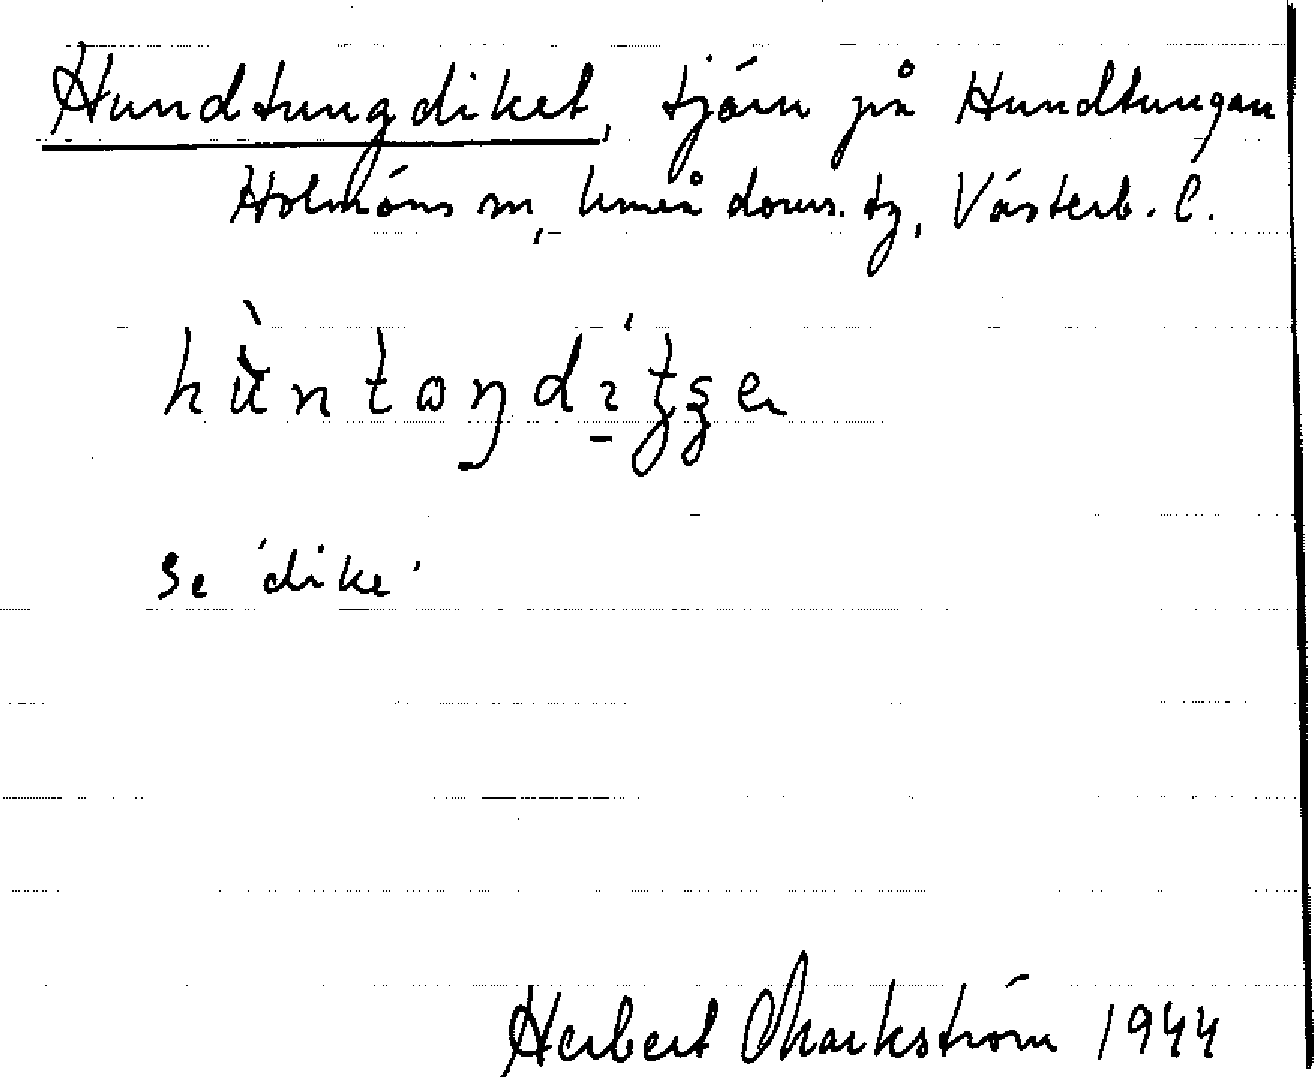 Hundtungdiket, tjärn på Hundtungan
Holmöns sn, Umeå doms. tg, Västerb. l.
se 'dike'
Herbert Markström 1944